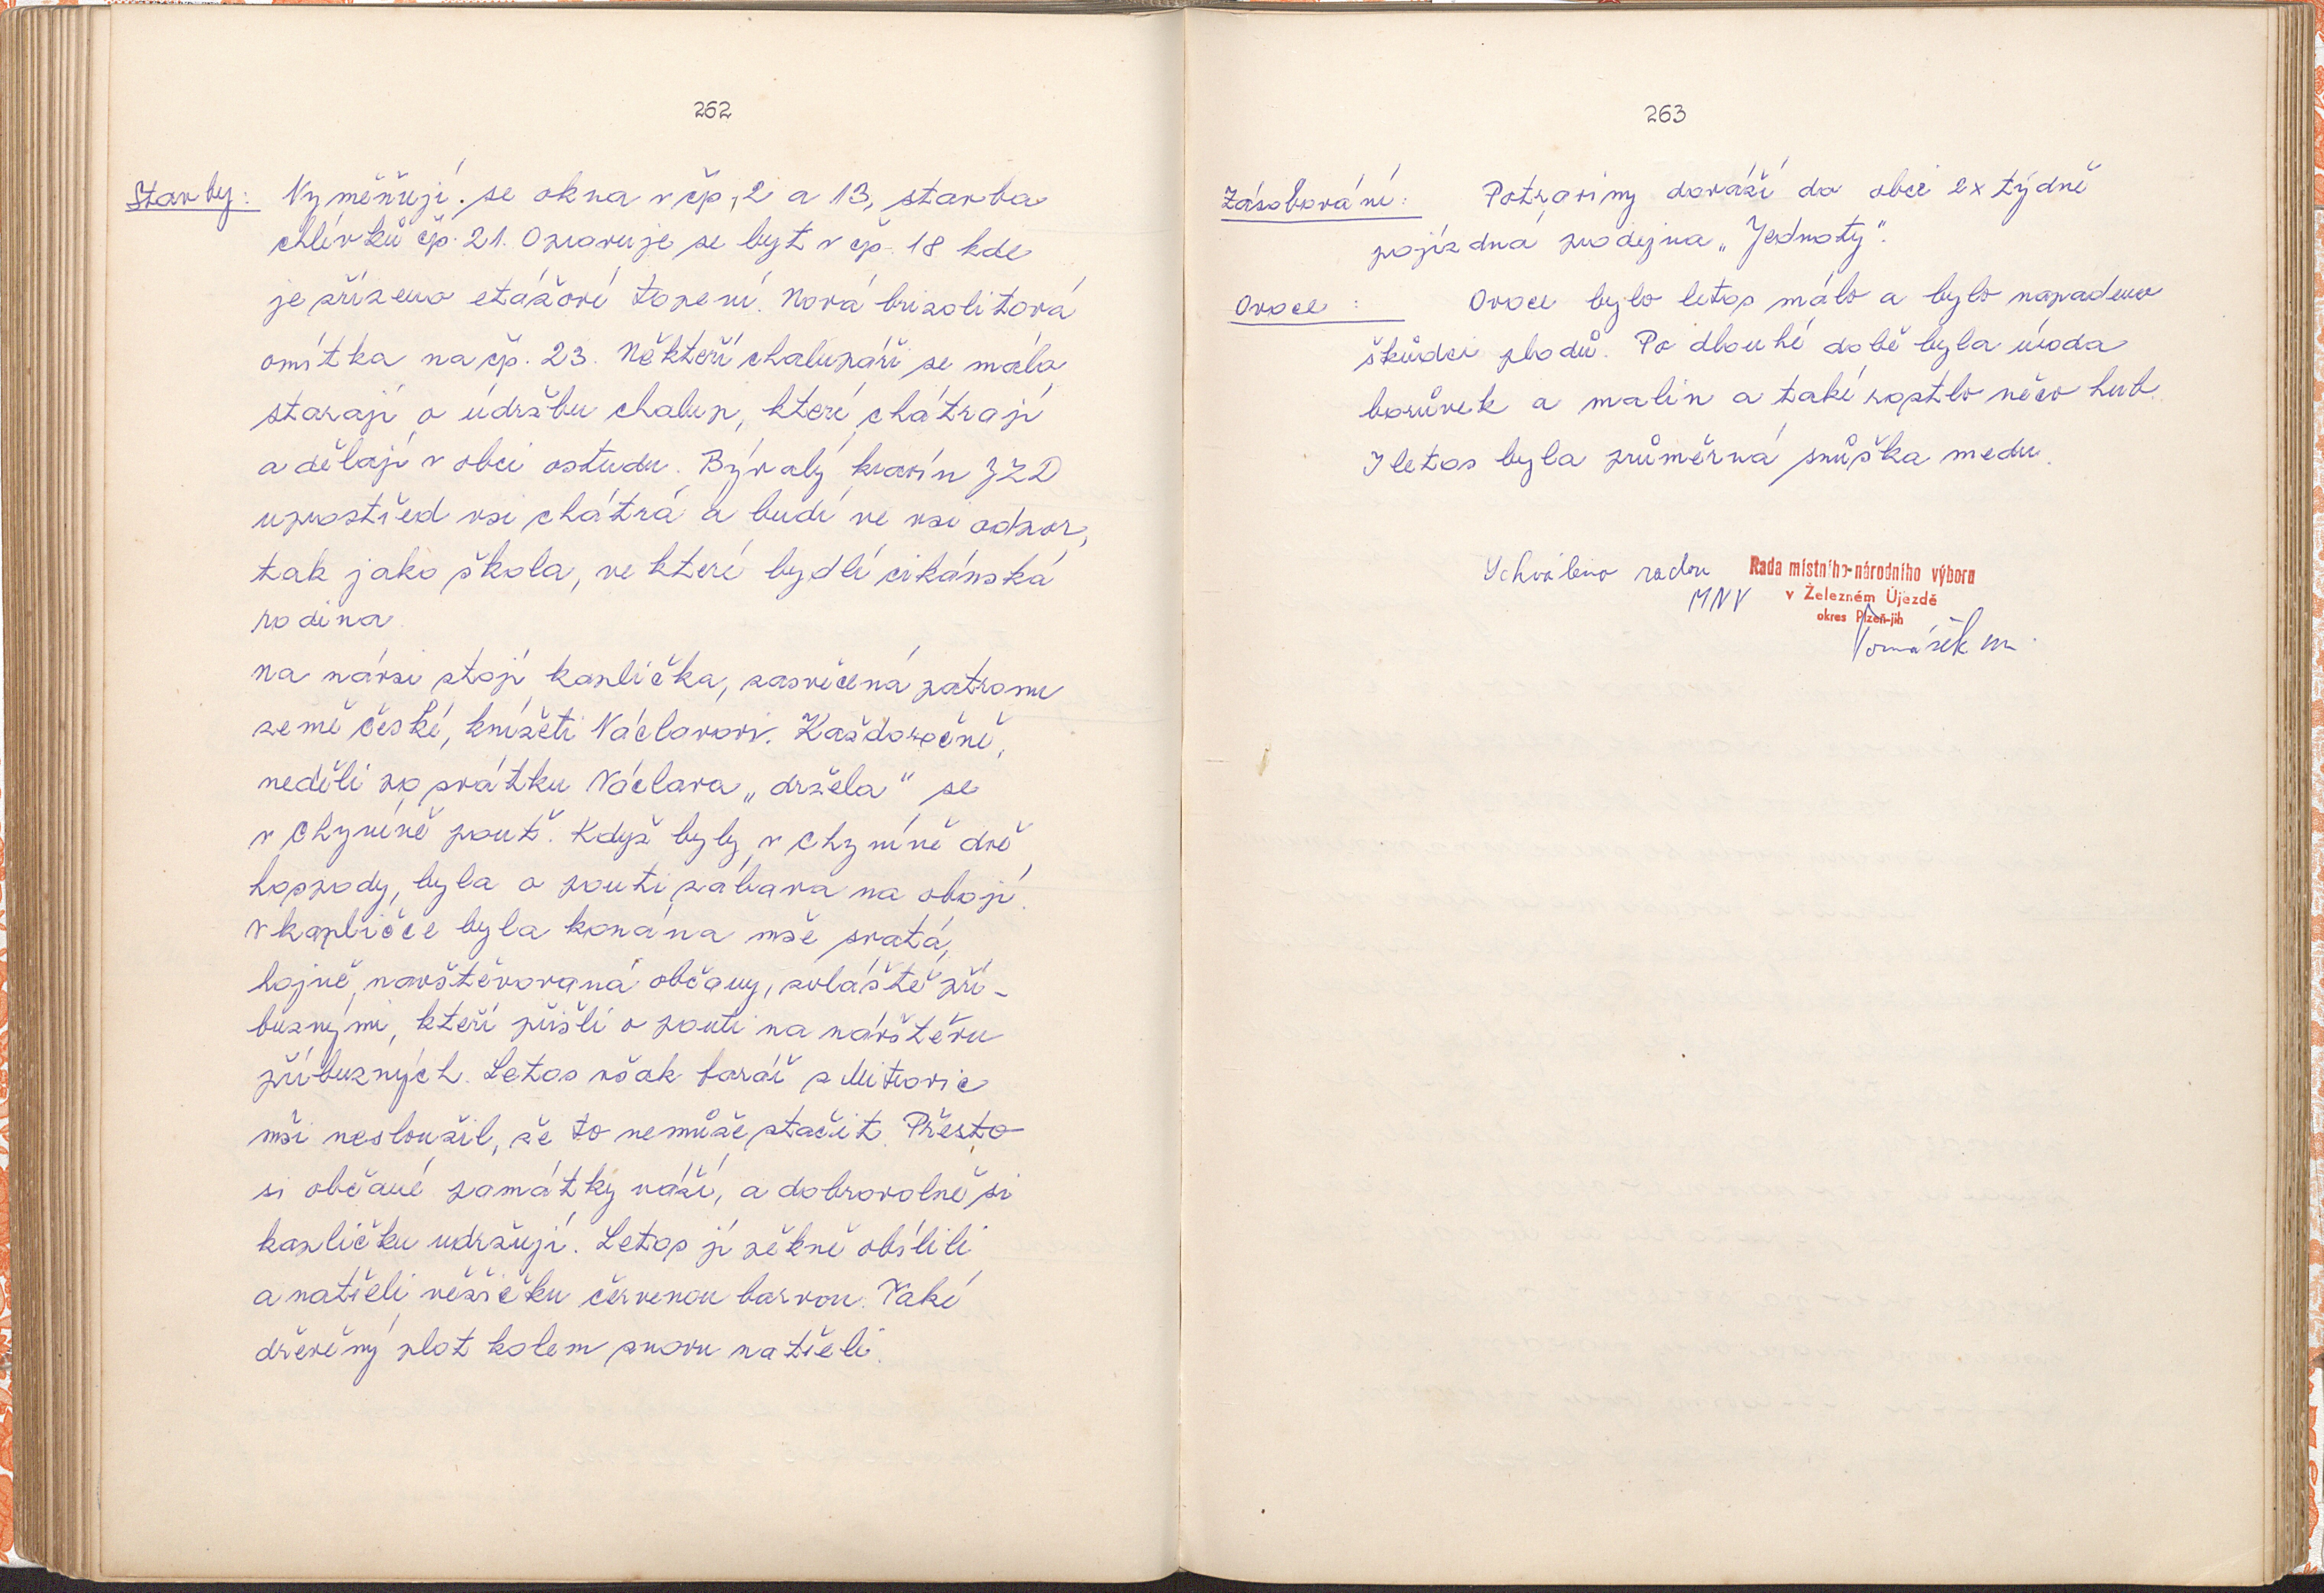 262
Stavby: Vyměňují se okna v čp. 2 a 13, stavba
chlívků čp. 21. Opravuje se byt v čp. 18 kde
je zřízeno etážové topení. Nová brizolitová
omítka na čp. 23. Někteří chalupáři se málo
starají o údržbu chalup, které chátrají
a dělají v obci ostudu. Bývalý kravín JZD
uprostřed vsi chátrá a budí ve vsi odpor,
tak jako škola, ve které bydlí cikánská
rodina.
Na návsi stojí kaplička, zasvěcená patronu
země české, knížeti Václavovi. Každoročně,
neděli po svátku Václava „držela" se
v Chyníně pouť. Když byly v Chyníně dvě
hospody, byla o pouti zábava na obojí.
V kapličce byla konána mše svatá,
hojně navštěvovaná občany, zvláště pří-
buznými, kteří přišli o pouti na návštěvu
příbuzných. Letos však farář z Mitrovic
mši nesloužil, že to nemůže stačit. Přesto
si občané památky váží, a dobrovolně si
kapličku udržují. Letos ji pěkně obílili
a natřeli věžičku červenou barvou. Také
dřevěný plot kolem znovu natřeli.
263
Zásobování: Potraviny dováží do obce 2x týdně
pojízdná prodejna „Jednoty".
Ovoce: Ovoce bylo letos málo a bylo napadeno
škůdci plodů. Po dlouhé době byla úroda
borůvek a malin a také rostlo něco hub.
I letos byla průměrná snůška medu.
Schváleno radou
MNV
Rada místního národního výboru
v Železném Újezdě
okres Plzeň-jih
Tomášek m